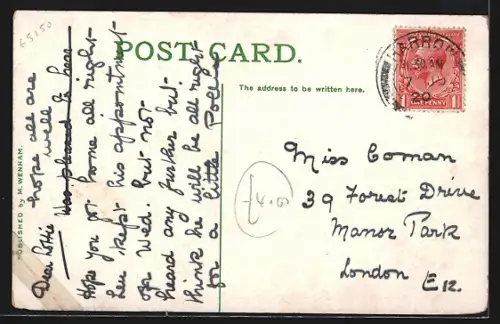 65150
POST CARD.
The address to be written here.
PUBLISHED by M. WENHAM.
Dear Lottie hope all are
well
Was pleased to hear
Hope you got home all right -
Len kept his appointment
for Wed. but not
heard any further but
think he will be all right
for a little
HARROW
20
ONE PENNY
1 1
£4.00
Miss Coman
39 Forest Drive
Manor Park
London E12.